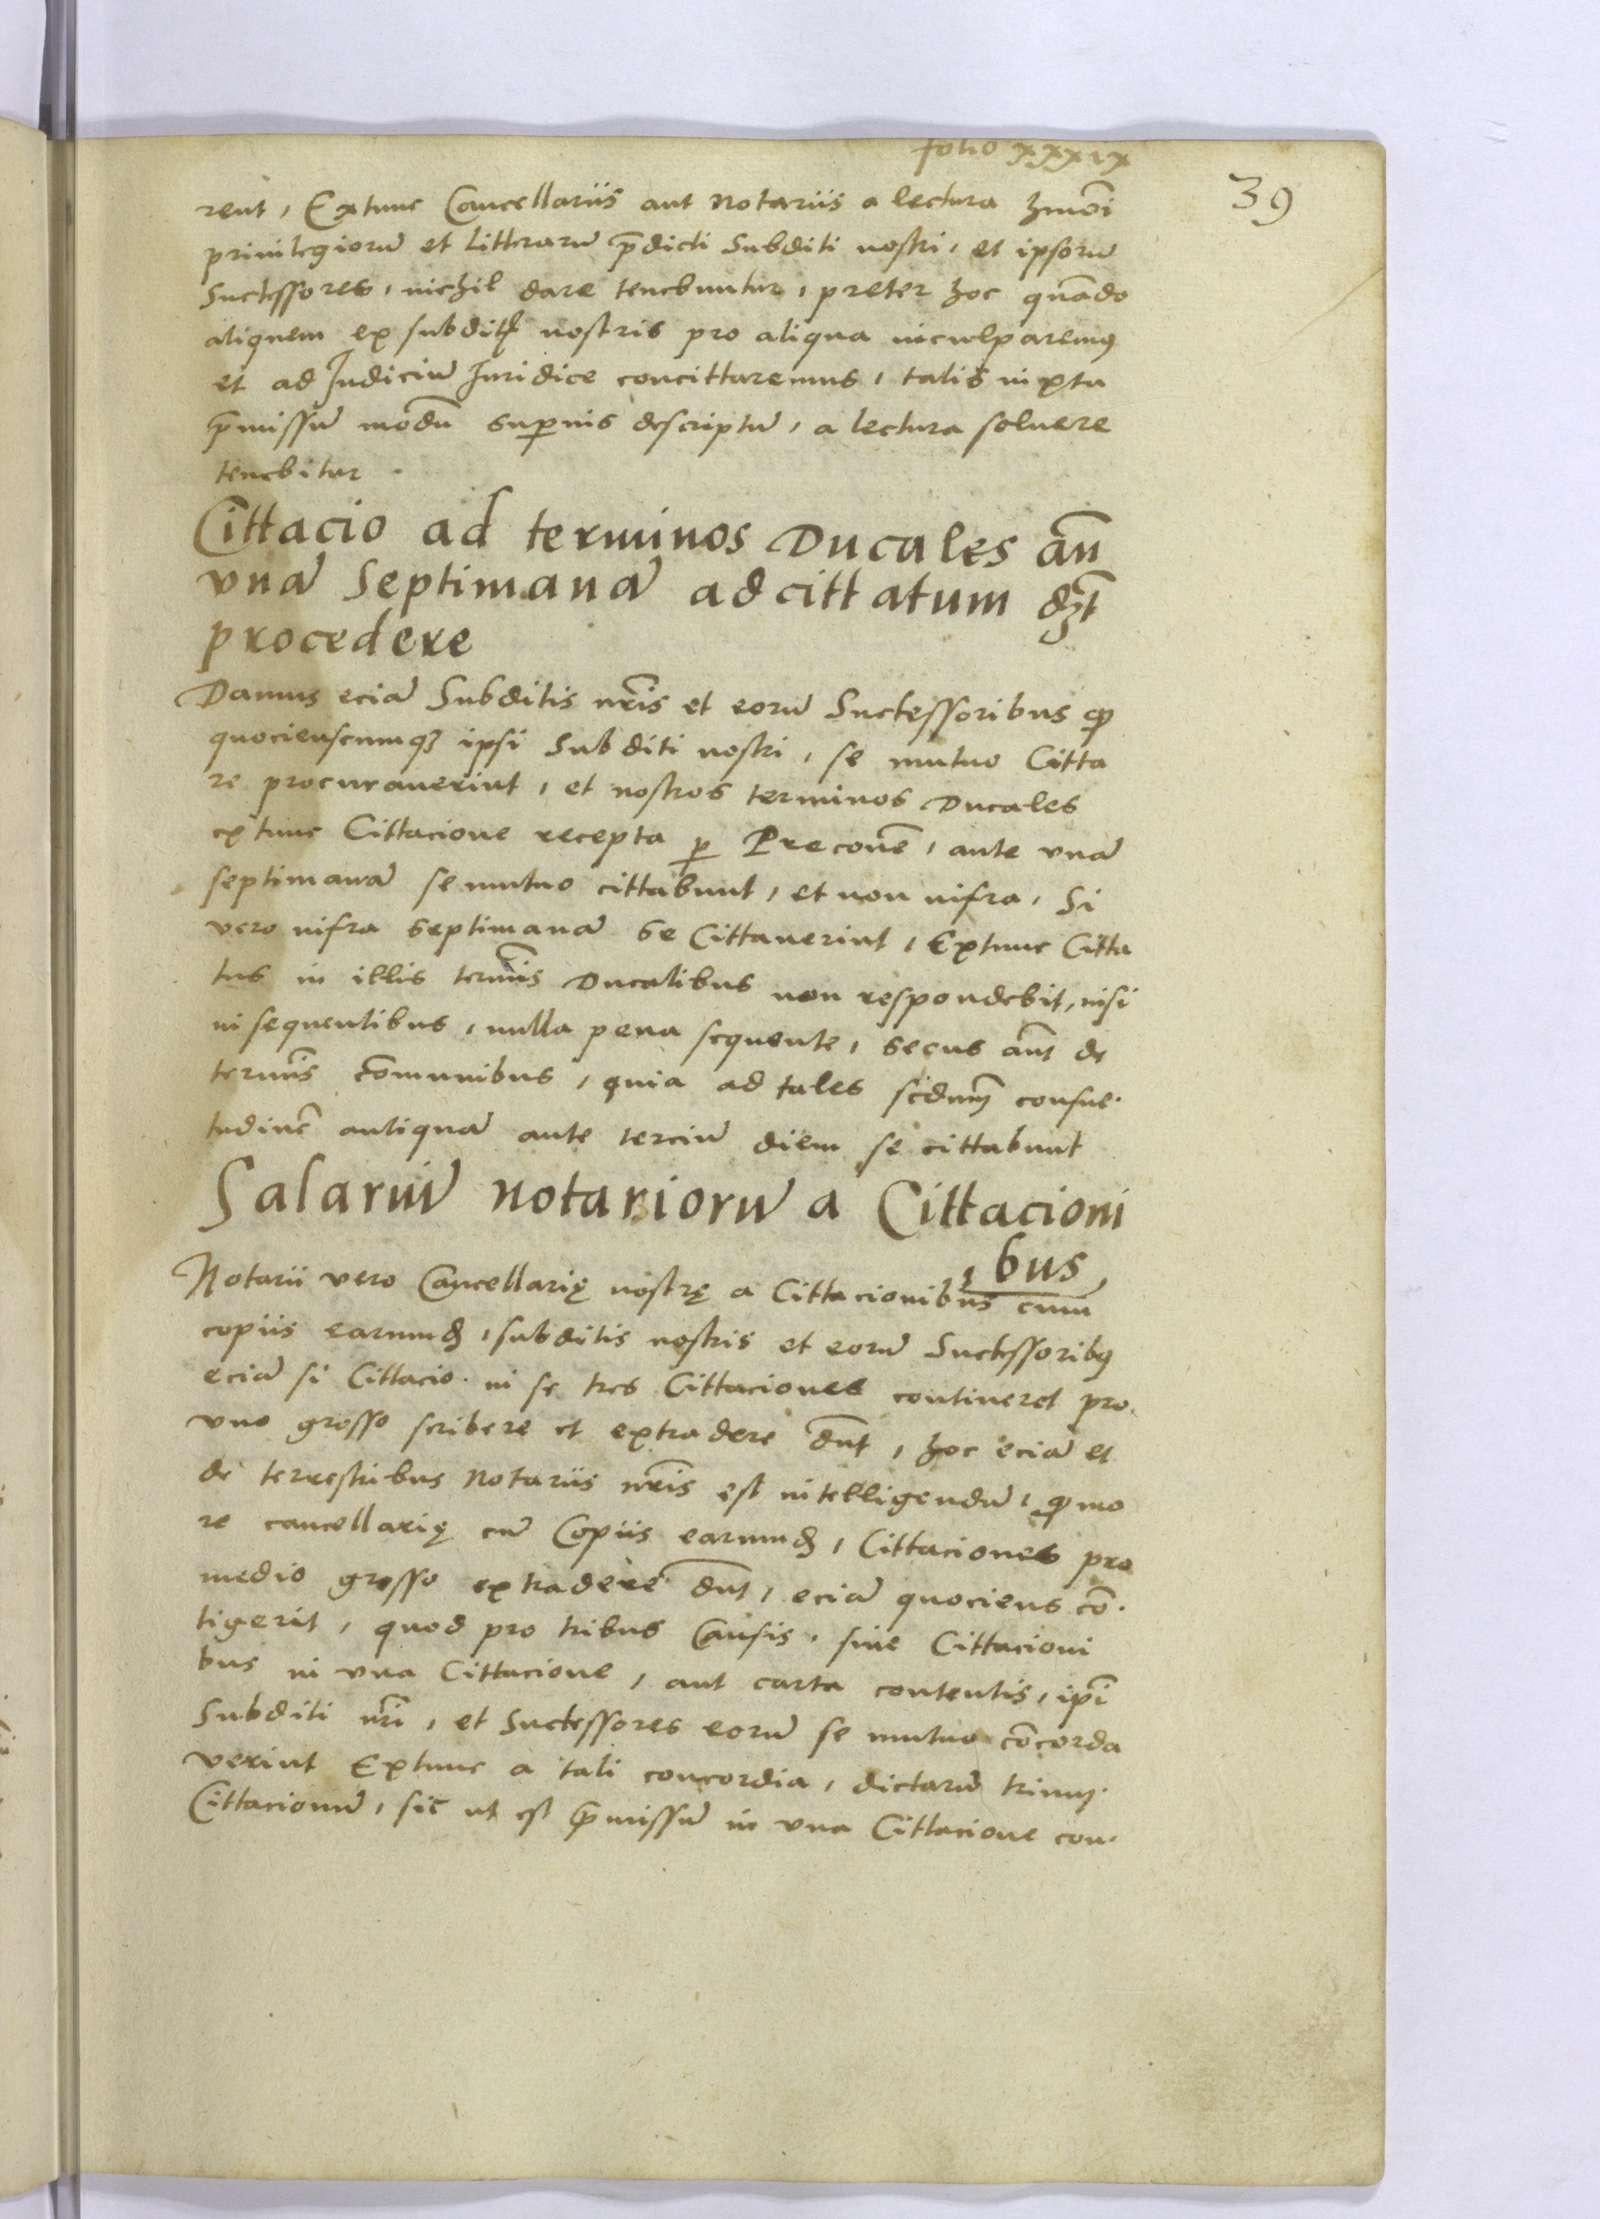 folio xxxix
39
rent, Extunc Cancellariis aut Notariis a lectura hmōi
priuilegiorū et litterarū p̄dicti Subditi nostri, et ipsorū
Successores, nichil dare tenebuntur, preter hoc quādo
aliquem ex subditꝭ nostris pro aliqua inculparemꝰ
et ad Judiciū Juridice concittaremus, talis iuxta
p̄missū modū supͥus descriptū, a lectura soluere
tenebitur.
Cittacio ad terminos Ducales añ
vnā Septimanā ad cittatum dꝫt
procedere
Damus eciā Subditis nrīs et eorū Successoribus ꝙ
quociescumqꝫ ipsi Subditi nostri, se mutuo Citta
re procurauerint, et nostros terminos Ducales
extunc Cittacione recepta ꝑ Preconē, ante vnā
septimanā se mutuo cittabunt, et non infra, Si
vero infra septimanā se Cittauerint, Extunc Citta
tus in illis termīs Ducalibus non respondebit, nisi
in sequentibus, nulla pena sequente, secus aūt de
termīs cōmunibus, quia ad tales scdm̄ consue.
tudinē antiquā ante terciū diem se cittabunt
Salariū notariorū a Cittacioni
bus
Notarii vero Cancellarię nostrę a Cittacionibus cum
copiis earumd̄, subditis nostris et eorū Successoribꝰ
eciā si Cittacio. in se tres Cittaciones contineret pro.
vno grosso scribere et extradere dn̄t, hoc eciā et
de terrestribus Notariis nrīs est intelligendū, ꝙ mo
re cancellarię cū Copiis earumd̄, Cittaciones pro
medio grosso extradere dn̄t, eciā quociens cō.
tigerit, quod pro tribus Causis, siue Cittacioni
bus in vna Cittacione, aut carta contentis, ipi̅
Subditi nrī, et Successores eorū se mutuo cōcorda
verint Extunc a tali concordia, dictarū triuꝫ.
Cittacionū, sic ut est p̄missū in vna Cittacione con.